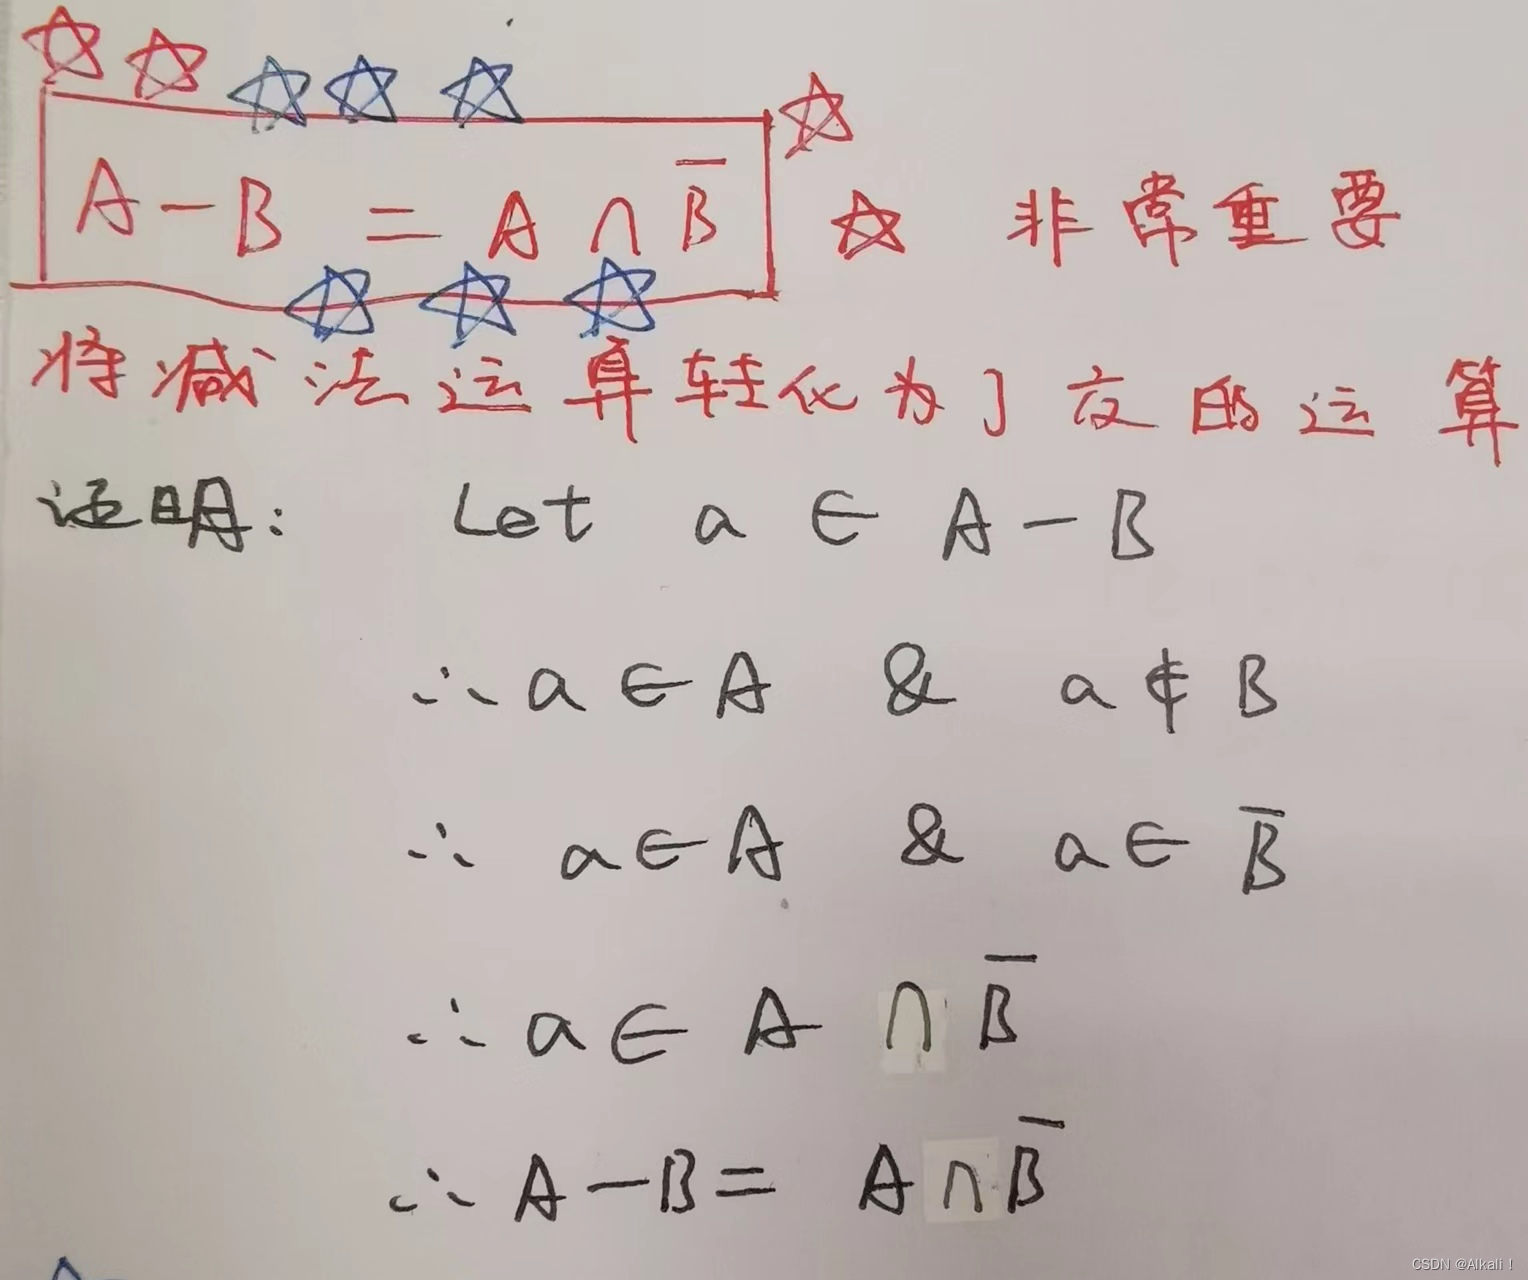 A - B = A ∩ B̅ 非常重要
将减法运算转化为了交的运算
证明: Let a ∈ A - B
∴ a ∈ A & a ∉ B
∴ a ∈ A & a ∈ B̅
∴ a ∈ A ∩ B̅
∴ A - B = A ∩ B̅
CSDN @Alkali！